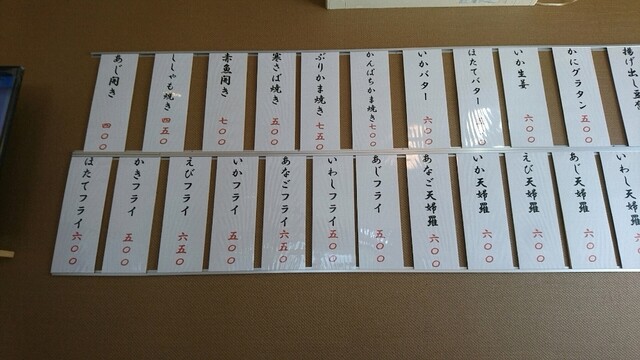 あじ開き 四〇〇
ししゃも焼き 四五〇
赤魚開き 七〇〇
寒さば焼き 五〇〇
ぶりかま焼き 七五〇
かんぱちかま焼き 七〇〇
いかバター 六〇〇
ほたてバター
いか生姜 六〇〇
かにグラタン 五〇〇
揚げ出し豆
ほたてフライ 六〇〇
かきフライ 五〇〇
えびフライ 六五〇
いかフライ 五〇〇
あなごフライ 六五〇
いわしフライ 五〇〇
あじフライ 五〇〇
あなご天婦羅 六〇〇
いか天婦羅 六〇〇
えび天婦羅 六〇〇
あじ天婦羅 五〇〇
いわし天婦羅